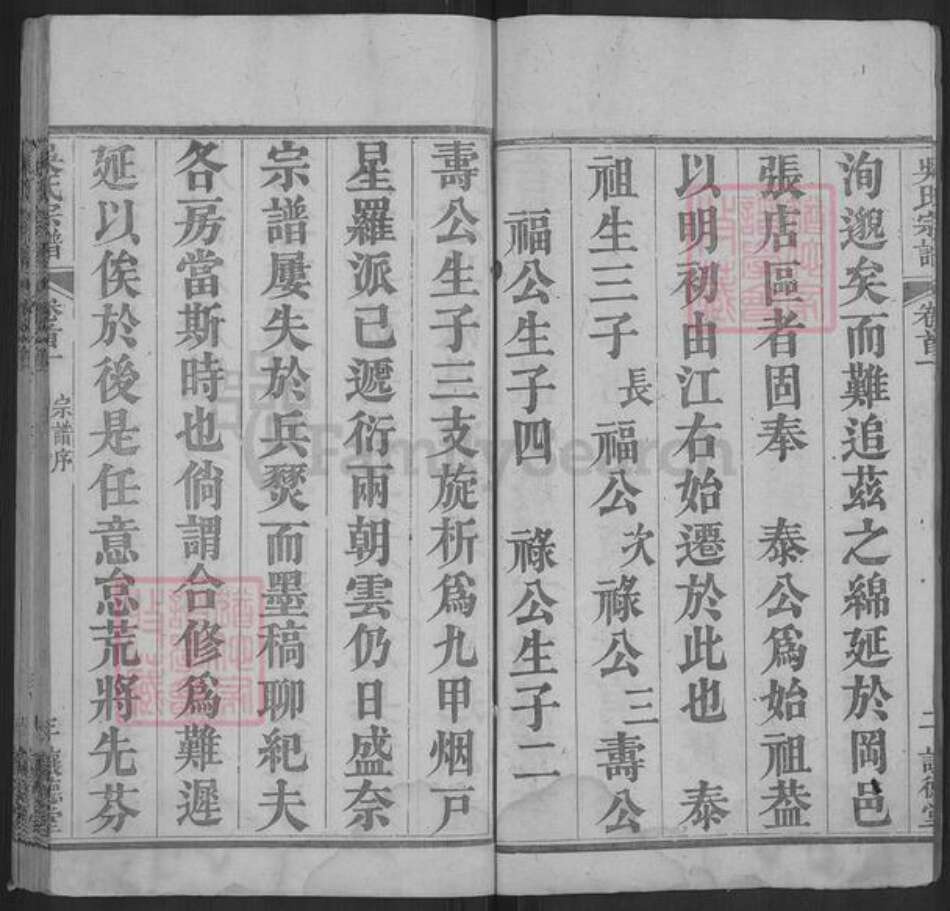 吳氏宗譜 卷首一 二 讓德堂
洵邈矣而難追茲之綿延於岡邑
張店區者固奉 泰公爲始祖葢
以明初由江右始遷於此也 泰
祖生三子 長 福公 次 祿公 三 壽公
福公生子四 祿公生子二
壽公生子三支旋析爲九甲烟戸
星羅派已遞衍兩朝雲仍日盛奈
宗譜屢失於兵燹而墨稿聊紀夫
各房當斯時也倘謂合修爲難遲
延以俟於後是任意怠荒將先芬
吳氏宗譜 卷首一 宗譜序 讓德堂
FamilySearch